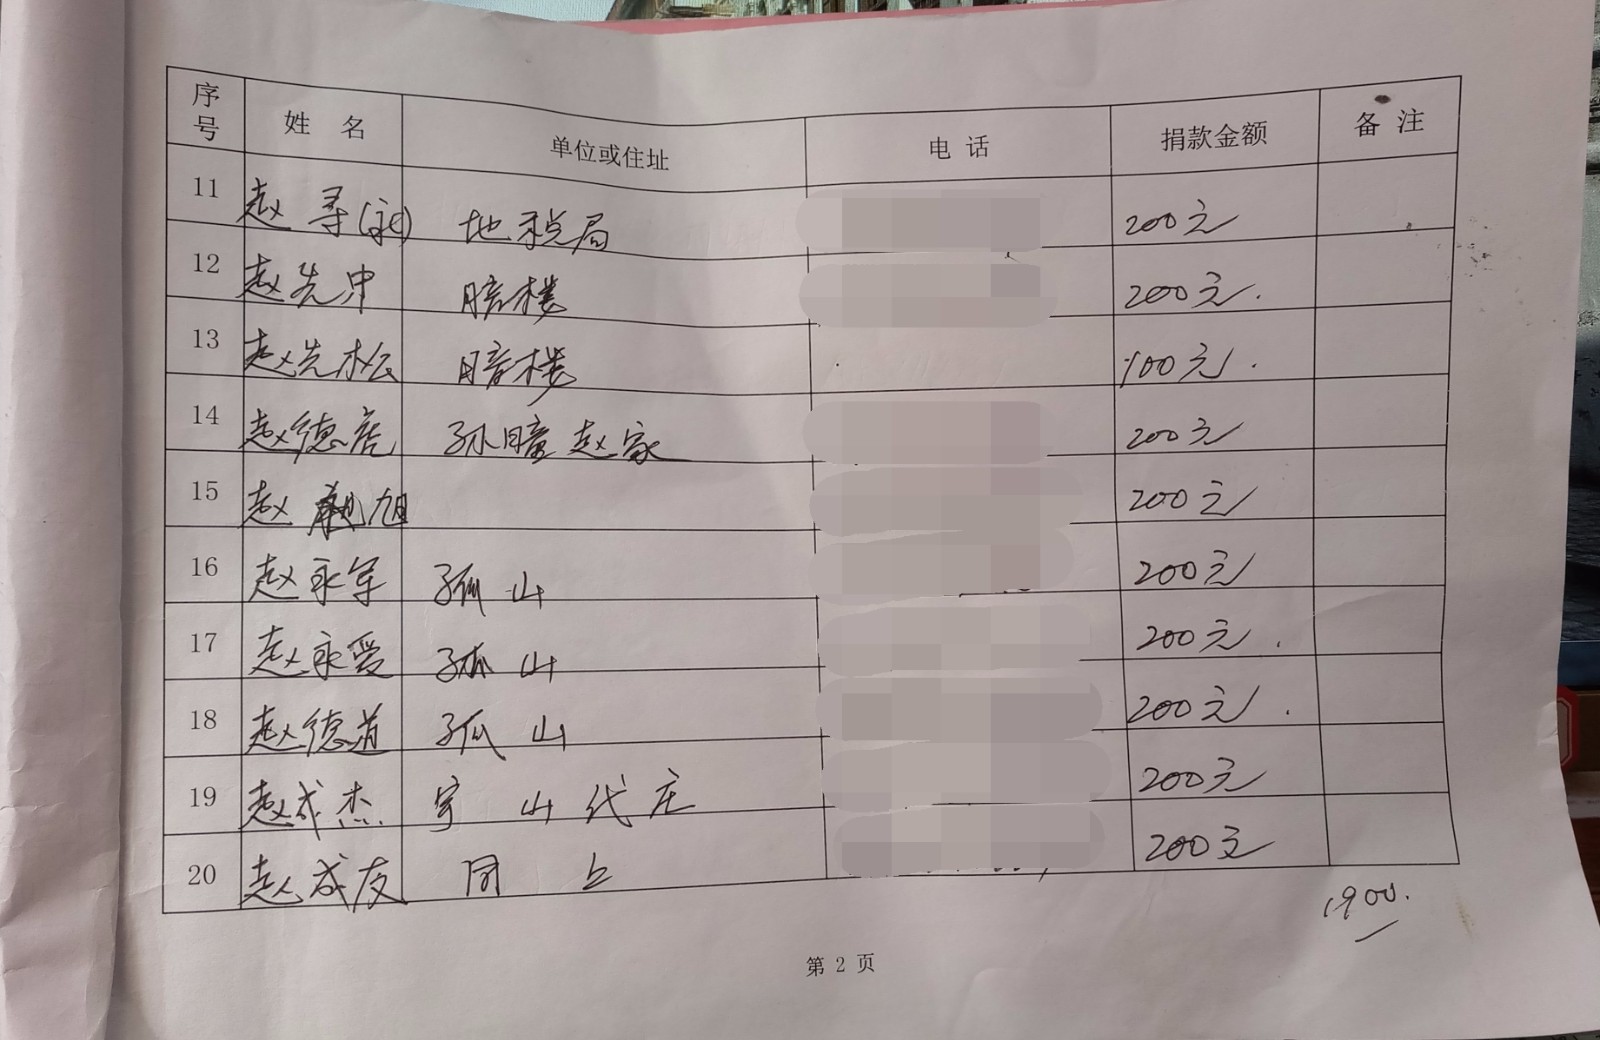 序号 姓 名 单位或住址 电 话 捐款金额 备 注
11 赵 寻(永) 地税局 200元
12 赵先中 暗楼 200元.
13 赵先松 暗楼 100元.
14 赵德 孙瞳赵家 200元
15 赵 旭 200元
16 赵永军 孤山 200元
17 赵永爱 孤山 200元.
18 赵德道 孤山 200元.
19 赵成杰 山代庄 200元
20 赵成友 同 上 200元
1900.
第 2 页